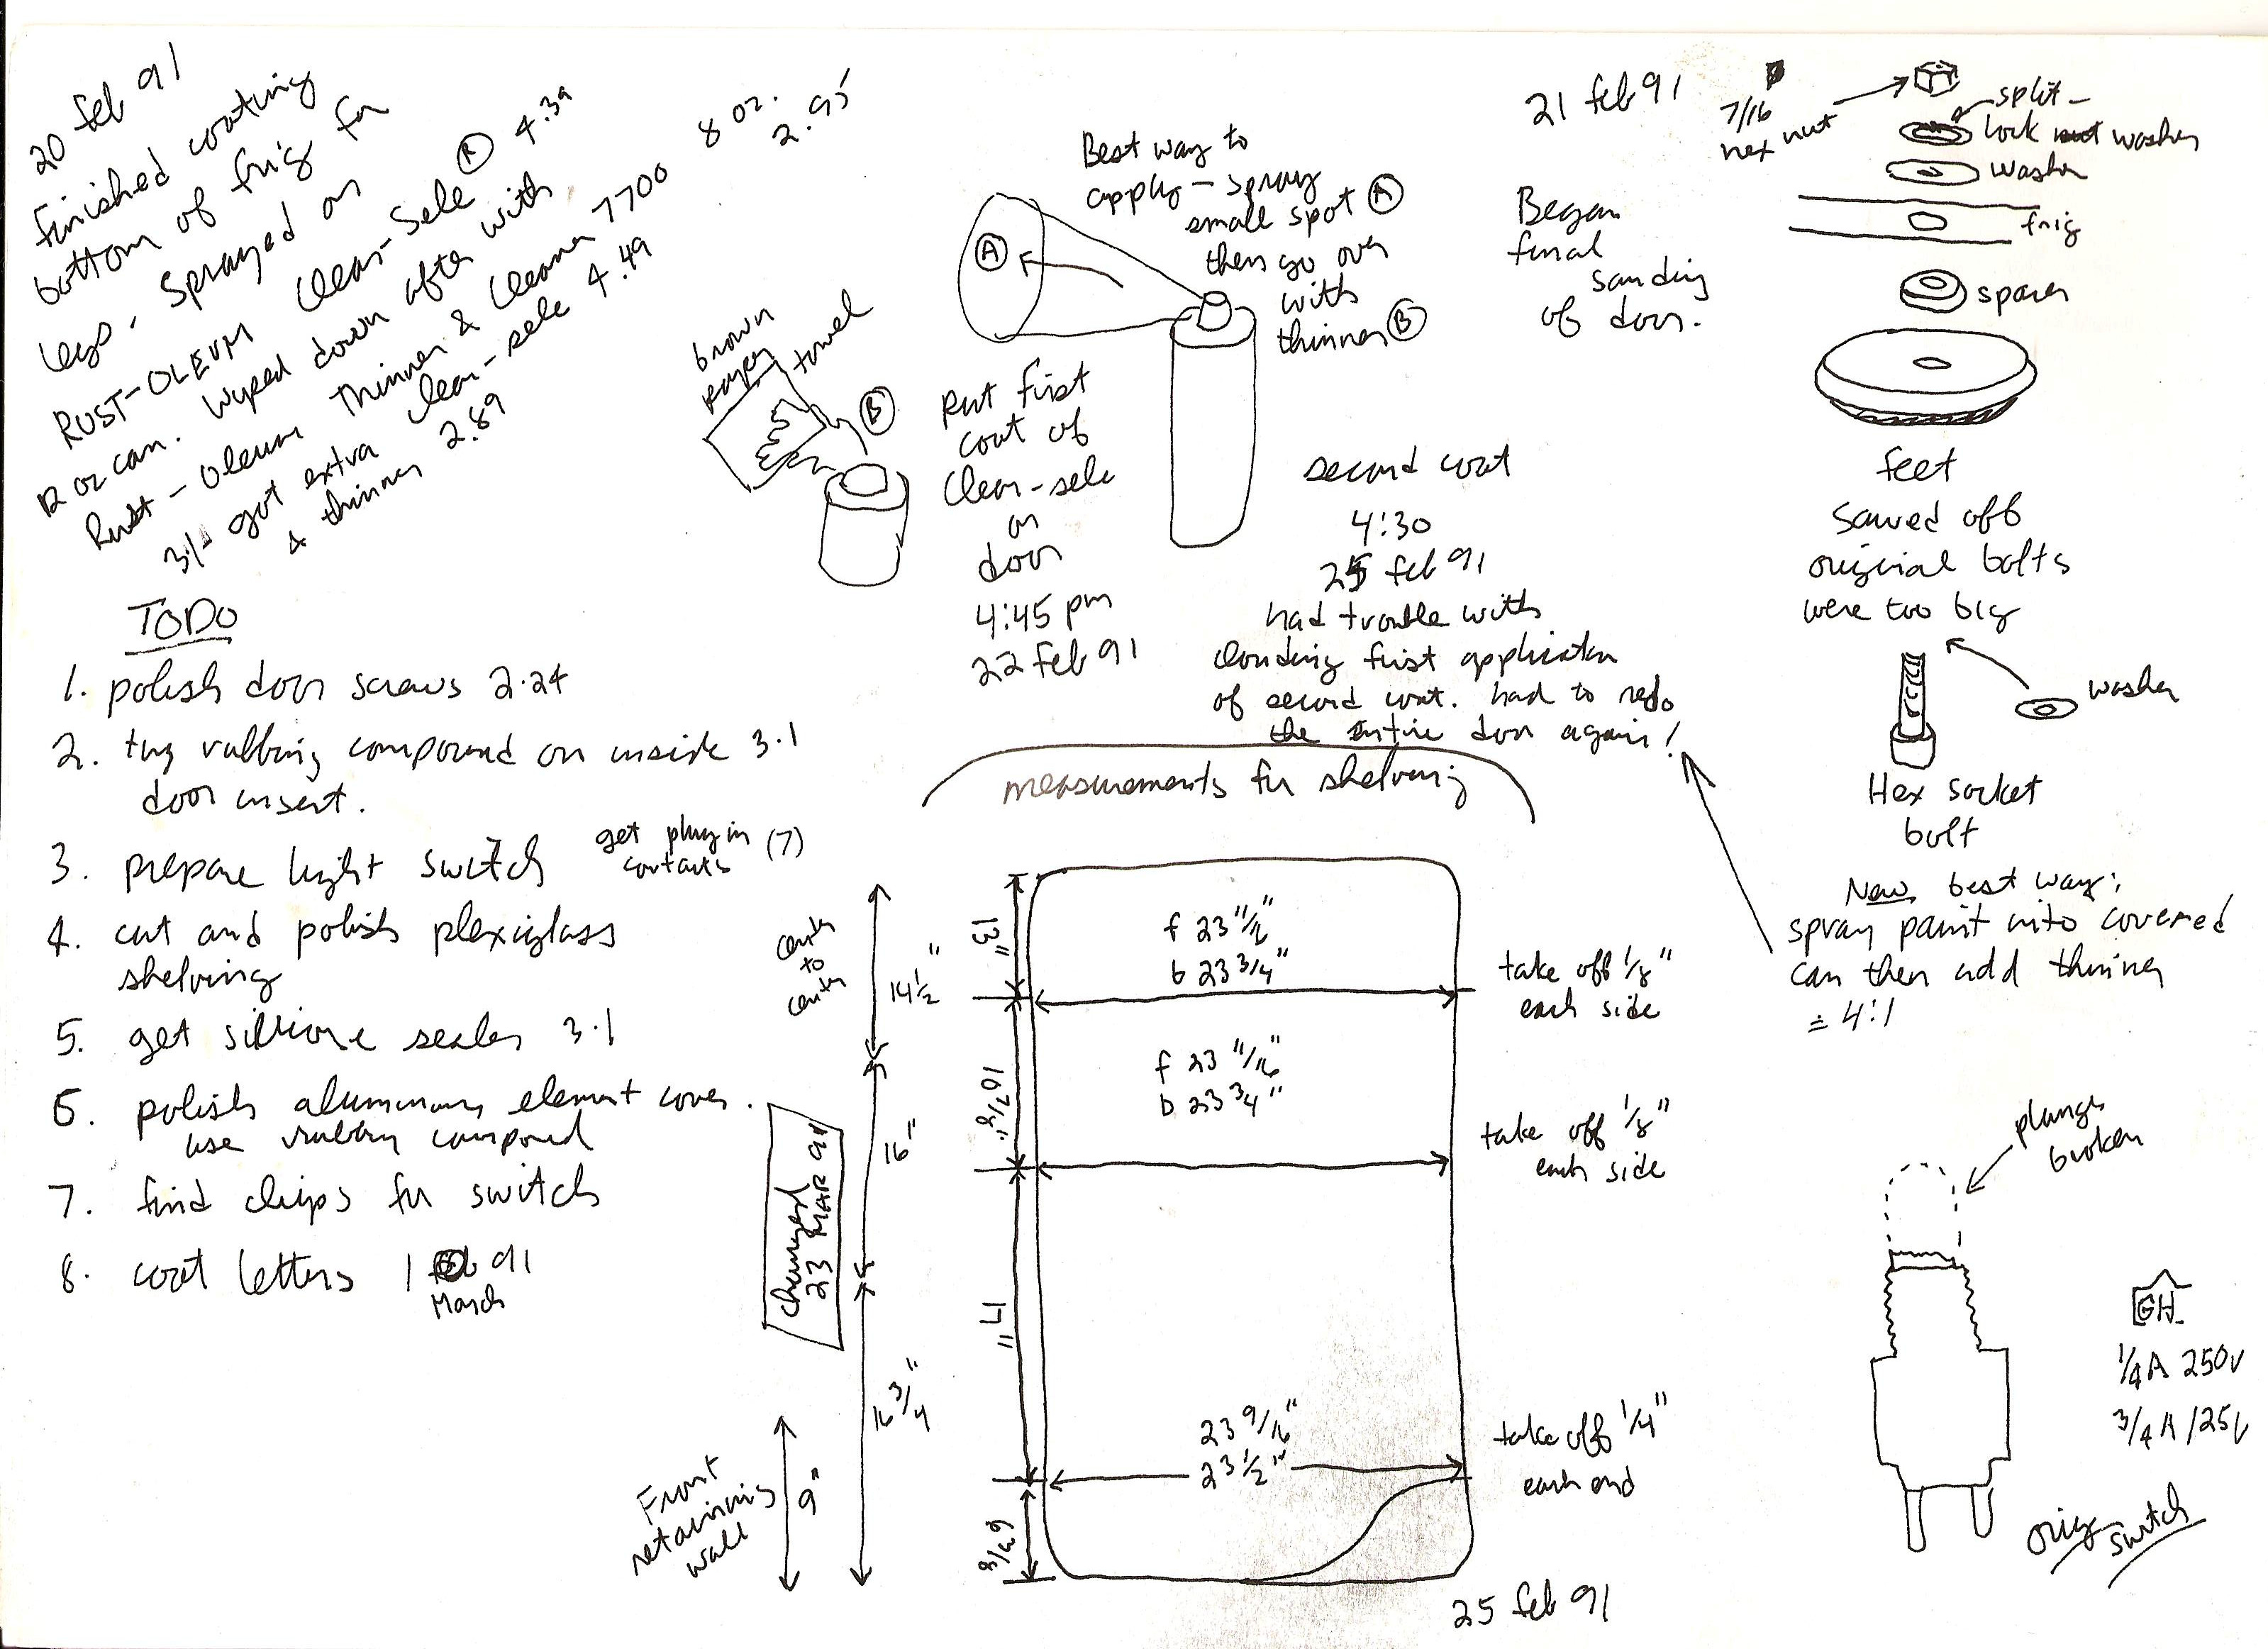 20 feb 91
finished coating
bottom of frig for
legs. Sprayed on
RUST-OLEUM Clear-Sele Ⓡ 4.39
12 oz can. Wiped down after with
Rust-Oleum Thinner & Cleaner 7700 8 oz. 2.95
3/1- got extra clear-sele 4.49
& thinner 2.89
TODO
1. polish door screws 2.24
2. try rubbing compound on inside 3.1
door insert.
3. prepare light switch get plug in
contacts (7)
4. cut and polish plexiglass
shelving
5. get silicone sealer 3.1
6. polish aluminum element cover.
use rubbing compound
7. find chips for switch
8. coat letters 1 feb 91
March
Best way to
apply - spray
small spot Ⓐ
then go over
with
thinner Ⓑ
Ⓐ
brown
paper
towel
Ⓑ
Put first
coat of
Clear-sele
on
door
4:45 pm
22 feb 91
second coat
4:30
25 feb 91
had trouble with
clouding first application
of second coat. had to redo
the entire door again!
21 feb 91
Began
final
sanding
of door.
7/16
hex nut
split-
lock nut washer
washer
frig
spacer
feet
Sawed off
original bolts
were too big
washer
Hex socket
bolt
New best way:
spray paint into covered
can then add thinner
≐ 4:1
measurements for shelving
center
to
center
14 1/2"
16"
16 3/4"
changed
23 MAR 91
Front
retaining
wall
9"
13"
10 7/8"
17"
6 3/8
f 23 11/16"
b 23 3/4"
take off 1/8"
each side
f 23 11/16"
b 23 3/4"
take off 1/8"
each side
23 9/16"
23 1/2"
take off 1/4"
each end
25 feb 91
plunger
broken
GH
1/4 A 250V
3/4 A 125V
orig
switch